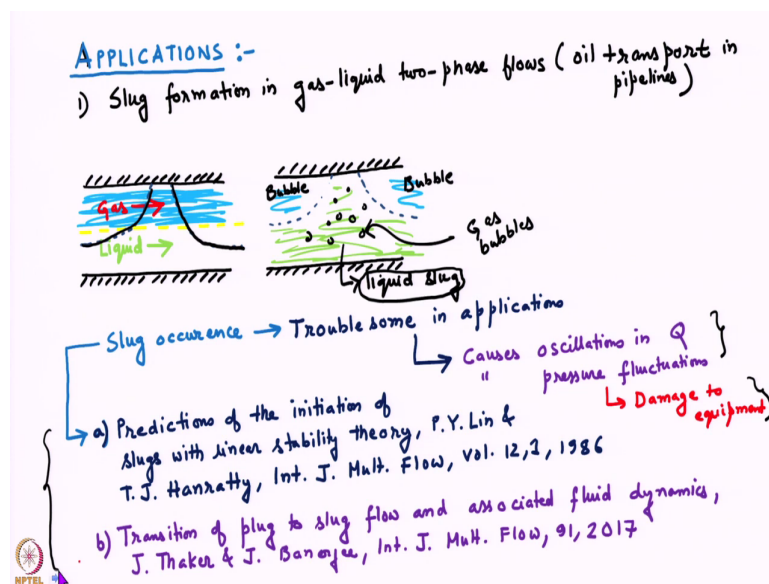 APPLICATIONS :-
1) Slug formation in gas-liquid two-phase flows (oil transport in
pipelines)
Gas
Liquid
Bubble
Bubble
Gas
bubbles
liquid slug
Slug occurence → Troublesome in applications
Causes oscillations in Q
" pressure fluctuations
Damage to
equipment
a) Predictions of the initiation of
slugs with linear stability theory, P.Y. Lin &
T.J. Hanratty, Int. J. Mult. Flow, vol. 12,1, 1986
b) Transition of plug to slug flow and associated fluid dynamics,
J. Thaker & J. Banerjee, Int. J. Mult. Flow, 91, 2017
NPTEL